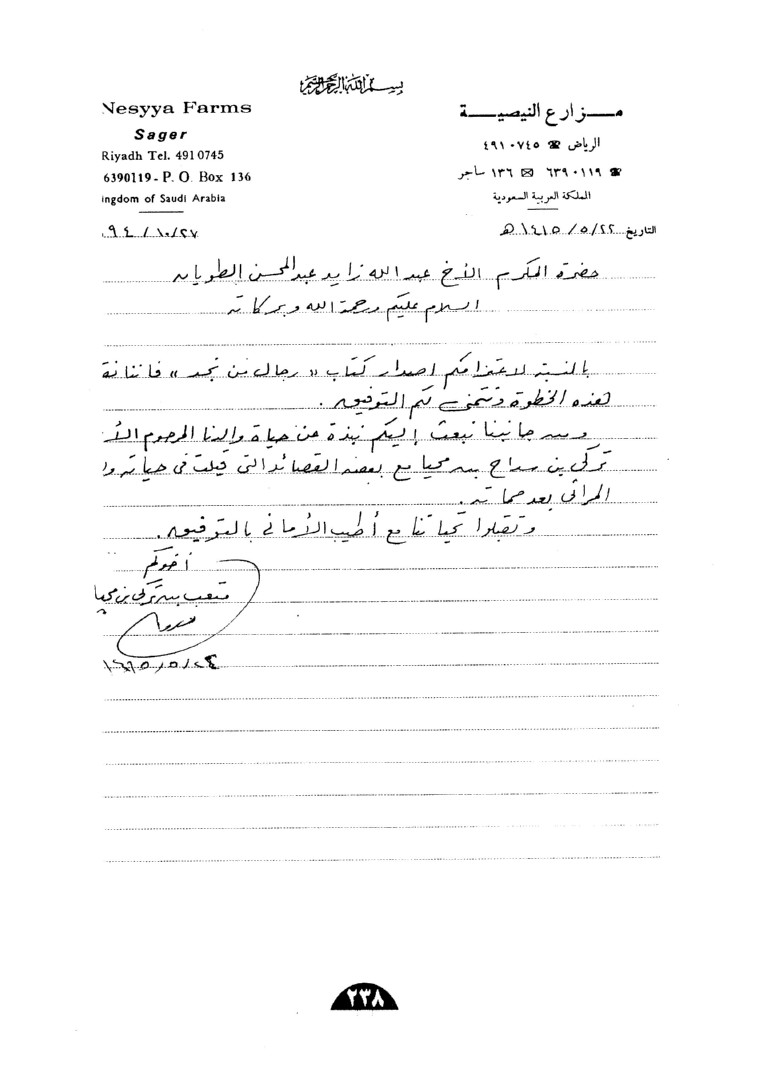 بسم الله الرحمن الرحيم
Nesyya Farms
Sager
Riyadh Tel. 4910745
6390119 - P. O. Box 136
ingdom of Saudi Arabia
مـزارع النيصيـة
الرياض ☎ ٤٩١٠٧٤٥
☎ ٦٣٩٠١١٩ ✉ ١٣٦ ساجر
المملكة العربية السعودية
٩٤ / ١٠/٢٧
التاريخ ٢٢/ ٥ / ١٤١٥ هـ
حضرة المكرم الأخ عبد الله زايد عبد المحسن الطويان
السلام عليكم ورحمة الله وبركاته
بالنسبة لاعتزامكم اصدار كتاب « رجال من نجد » فاننا
لهذه الخطوة ونتمنى لكم التوفيق .
ومن جانبنا نبعث إليكم نبذة عن حياة والدنا المرحوم
تركي بن سداح بن محيا مع بعض القصائد التي قيلت في حياته وا
المراثي بعد مماته .
وتقبلوا تحياتنا مع أطيب الأماني بالتوفيق .
أخوكم
متعب بن تركي بن محيا
٢٣٨